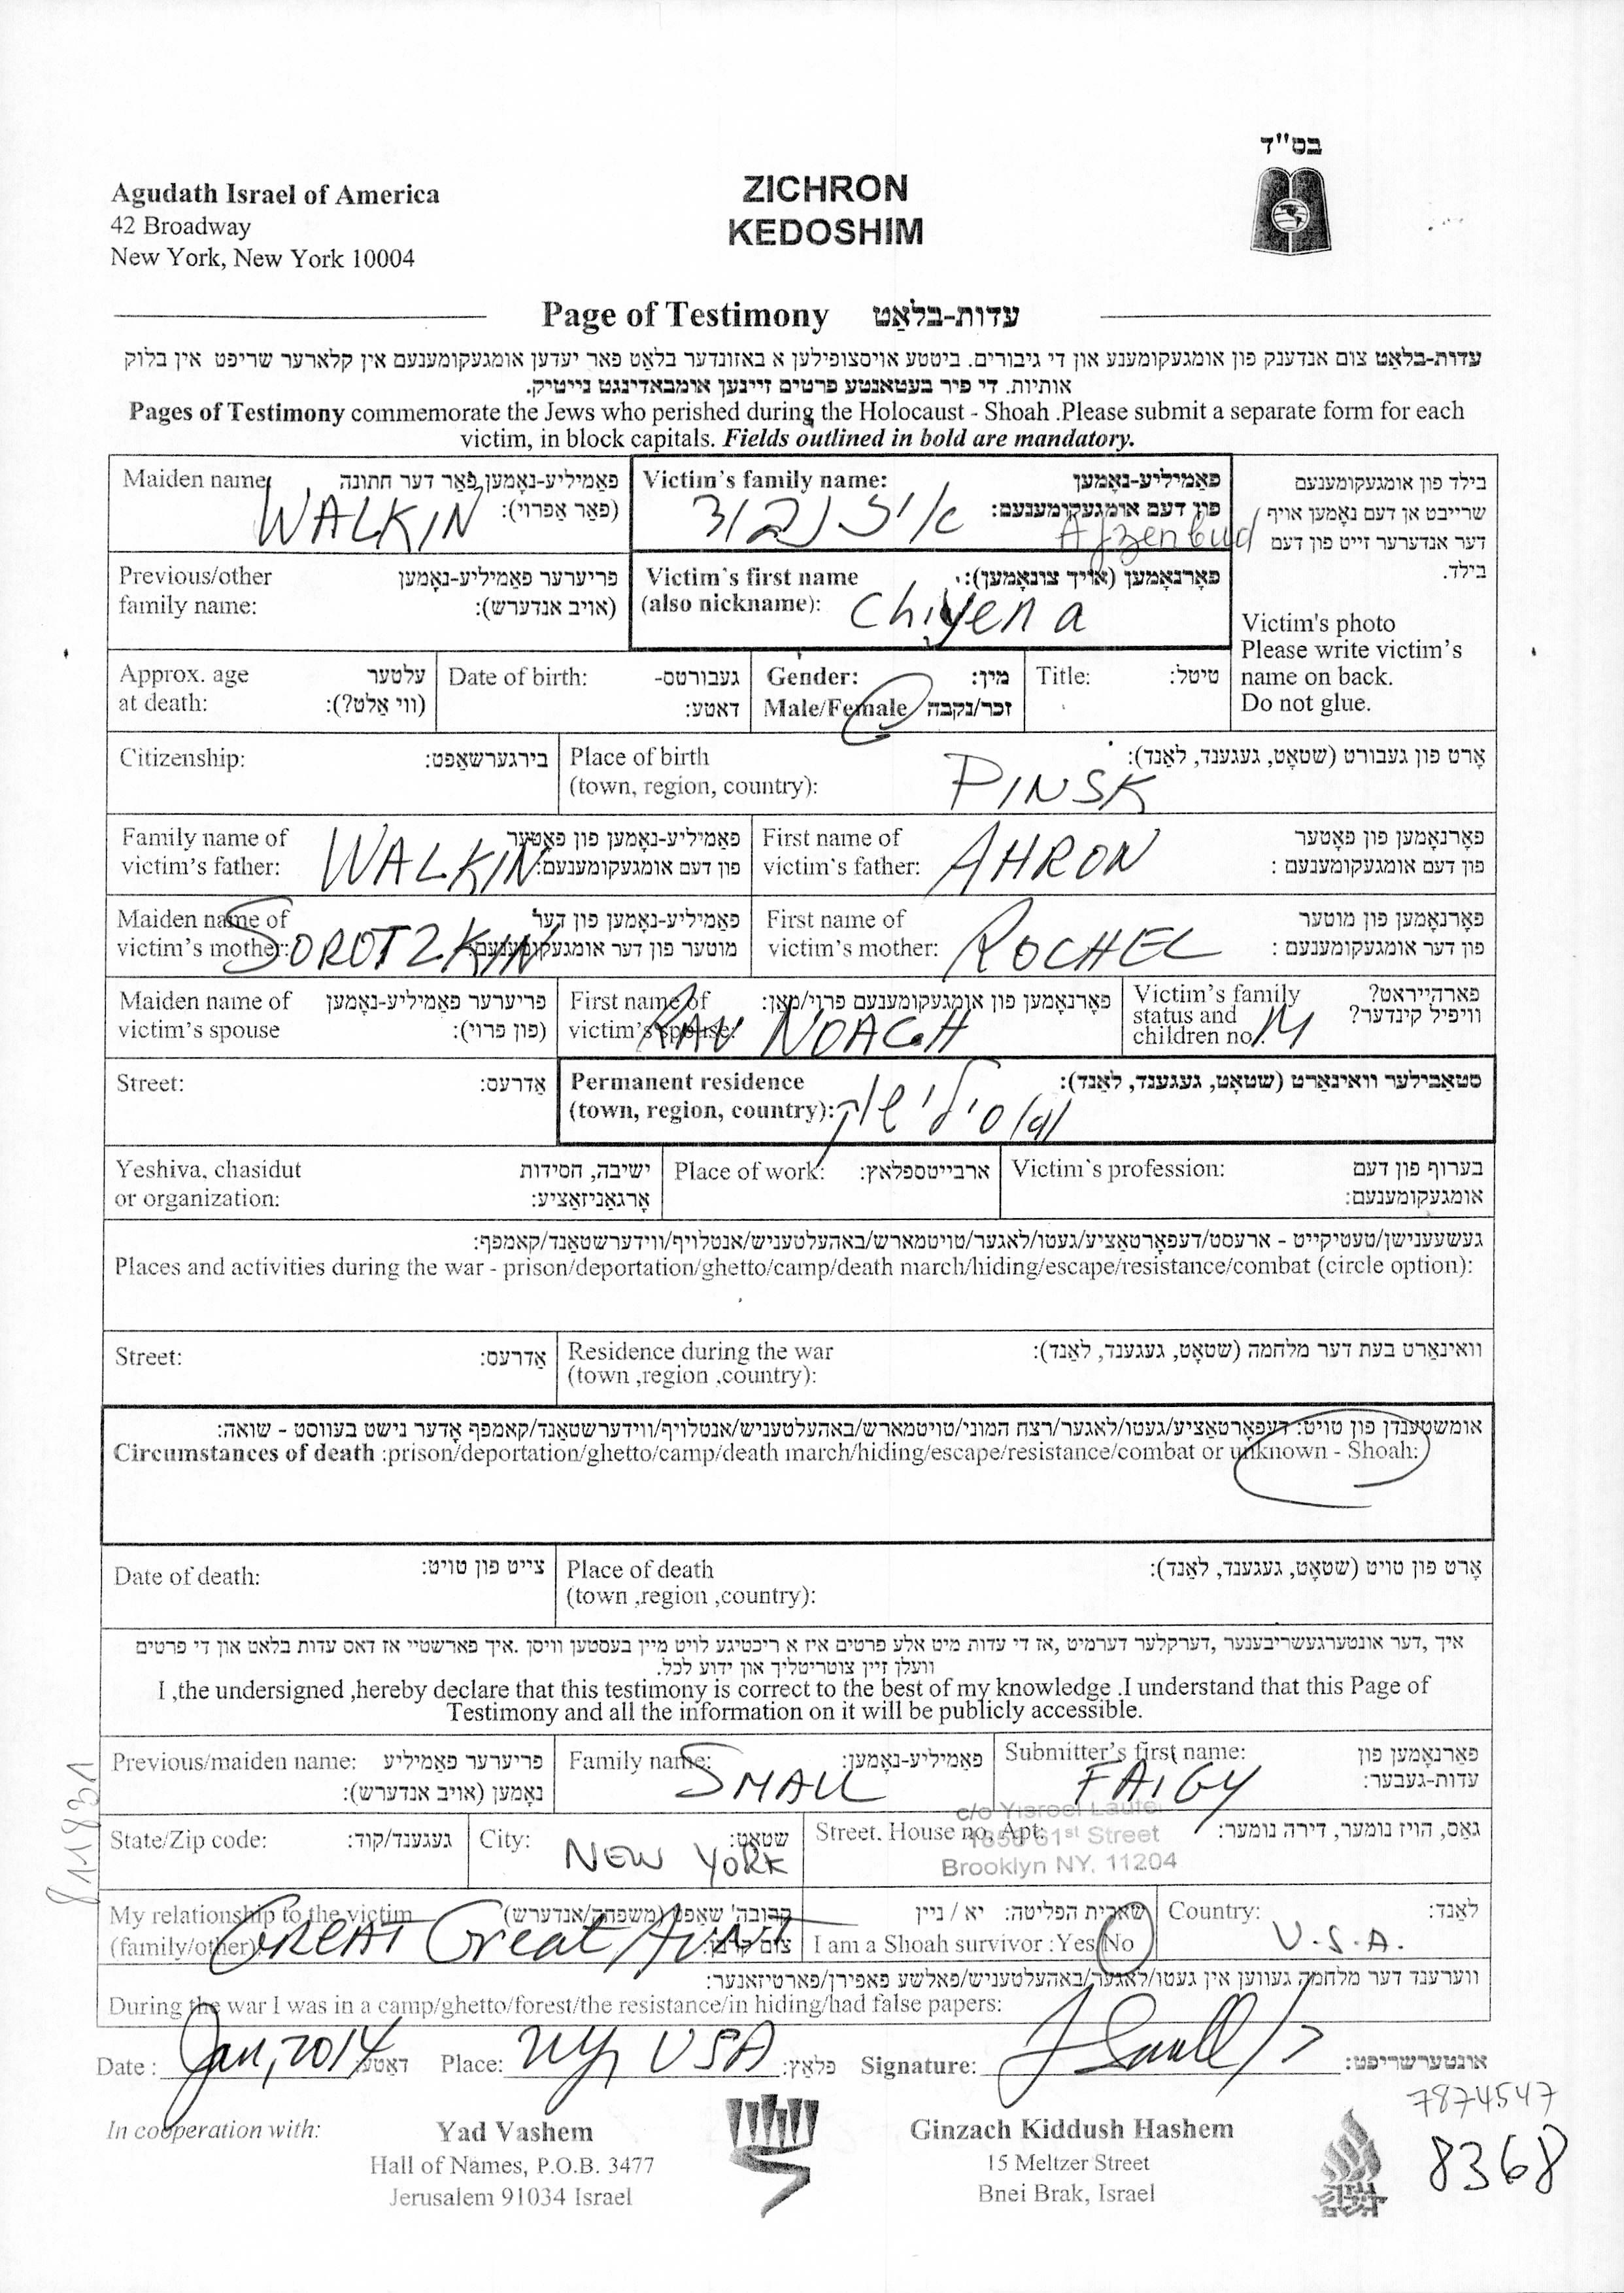 בס"ד
Agudath Israel of America
42 Broadway
New York, New York 10004
ZICHRON
KEDOSHIM
Page of Testimony עדות-בלאַט
עדות-בלאַט צום אנדענק פון אומגעקומענע און די גיבורים. ביטטע אויסצופילען א באזונדער בלאט פאר יעדען אומגעקומענעם אין קלארער שריפט אין בלוק
אותיות. די פיר בעטאנטע פרטים זיינען אומבאדינגט נייטיק.
Pages of Testimony commemorate the Jews who perished during the Holocaust - Shoah .Please submit a separate form for each
victim, in block capitals. Fields outlined in bold are mandatory.
Maiden name פאַמיליע-נאָמען פאַר דער חתונה
(פאַר אַפרוי):
WALKIN
Victim's family name: פאַמיליע-נאָמען
פון דעם אומגעקומענעם:
אייזנבוד
Ajzenbud
בילד פון אומגעקומענעם
שרייבט אן דעם נאָמען אויף
דער אנדערער זייט פון דעם
בילד.
Victim's photo
Please write victim's
name on back.
Do not glue.
Previous/other פריערער פאַמיליע-נאָמען
family name: (אויב אנדערש):
Victim's first name פאָרנאָמען (אויך צונאָמען):
(also nickname):
Chiyena
Approx. age עלטער
at death: (ווי אַלט?):
Date of birth: געבורטס-
דאטע:
Gender: מין:
Male/Female זכר/נקבה
Title: טיטל:
Citizenship: בירגערשאַפט:
Place of birth אָרט פון געבורט (שטאָט, געגענד, לאַנד):
(town, region, country):
PINSK
Family name of פאַמיליע-נאָמען פון פאָטער
victim's father: פון דעם אומגעקומענעם:
WALKIN
First name of פאָרנאָמען פון פאָטער
victim's father: פון דעם אומגעקומענעם :
AHRON
Maiden name of פאַמיליע-נאָמען פון דער
victim's mother: מוטער פון דער אומגעקומענעם
SOROTZKIN
First name of פאָרנאָמען פון מוטער
victim's mother: פון דער אומגעקומענעם :
ROCHEL
Maiden name of פריערער פאַמיליע-נאָמען
victim's spouse (פון פרוי):
First name of פאָרנאָמען פון אומגעקומענעם פרוי/מאַן:
victim's spouse:
RAV NOACH
Victim's family פארהייראט?
status and וויפיל קינדער?
children no.
M
Street: אַדרעס:
Permanent residence סטאַבילער וואינאַרט (שטאָט, געגענד, לאַנד):
(town, region, country):
Yeshiva, chasidut ישיבה, חסידות
or organization: אָרגאַניזאַציע:
Place of work: ארבייטספלאץ:
Victim's profession: בערוף פון דעם
אומגעקומענעם:
געשעענישן/טעטיקייט - ארעסט/דעפּאָרטאַציע/געטו/לאגער/טויטמארש/באהעלטעניש/אנטלויף/ווידערשטאַנד/קאמפף:
Places and activities during the war - prison/deportation/ghetto/camp/death march/hiding/escape/resistance/combat (circle option):
Street: אַדרעס:
Residence during the war וואינאַרט בעת דער מלחמה (שטאָט, געגענד, לאַנד):
(town ,region ,country):
אומשטענדן פון טויט: דעפּאָרטאַציע/געטו/לאגער/רצח המוני/טויטמארש/באהעלטעניש/אנטלויף/ווידערשטאַנד/קאמפף אָדער נישט בעווסט - שואה:
Circumstances of death :prison/deportation/ghetto/camp/death march/hiding/escape/resistance/combat or unknown - Shoah:
Date of death: צייט פון טויט:
Place of death אָרט פון טויט (שטאָט, געגענד, לאַנד):
(town ,region ,country):
איך ,דער אונטערגעשריבענער ,דערקלער דערמיט ,אז די עדות מיט אלע פרטים איז א ריכטיגע לויט מיין בעסטען וויסן .איך פארשטיי אז דאס עדות בלאט און די פרטים
וועלן זיין צוטריטליך און ידוע לכל.
I ,the undersigned ,hereby declare that this testimony is correct to the best of my knowledge .I understand that this Page of
Testimony and all the information on it will be publicly accessible.
Previous/maiden name: פריערער פאַמיליע
נאָמען (אויב אנדערש):
Family name: פאַמיליע-נאָמען:
SMALL
Submitter's first name: פאָרנאָמען פון
עדות-געבער:
FAIGY
State/Zip code: געגענד/קוד:
City: שטאָט:
NEW YORK
Street. House no. Apt: גאַס, הויז נומער, דירה נומער:
c/o Yisroel
61st Street
Brooklyn NY, 11204
My relationship to the victim קרובה' שאַפט (משפחה/אנדערש)
(family/other):
GREAT Great AUNT
שארית הפליטה: יא / ניין
I am a Shoah survivor :Yes/No
Country: לאַנד:
U.S.A.
ווערענד דער מלחמה געווען אין געטו/לאגער/באהעלטעניש/פאלשע פאפירן/פארטיזאנער:
During the war I was in a camp/ghetto/forest/the resistance/in hiding/had false papers:
Date : Jan, 2014 דאטע
Place: NY, USA פלאַץ:
Signature: אונטערשריפט:
811831
7874547
8368
In cooperation with:
Yad Vashem
Hall of Names, P.O.B. 3477
Jerusalem 91034 Israel
Ginzach Kiddush Hashem
15 Meltzer Street
Bnei Brak, Israel